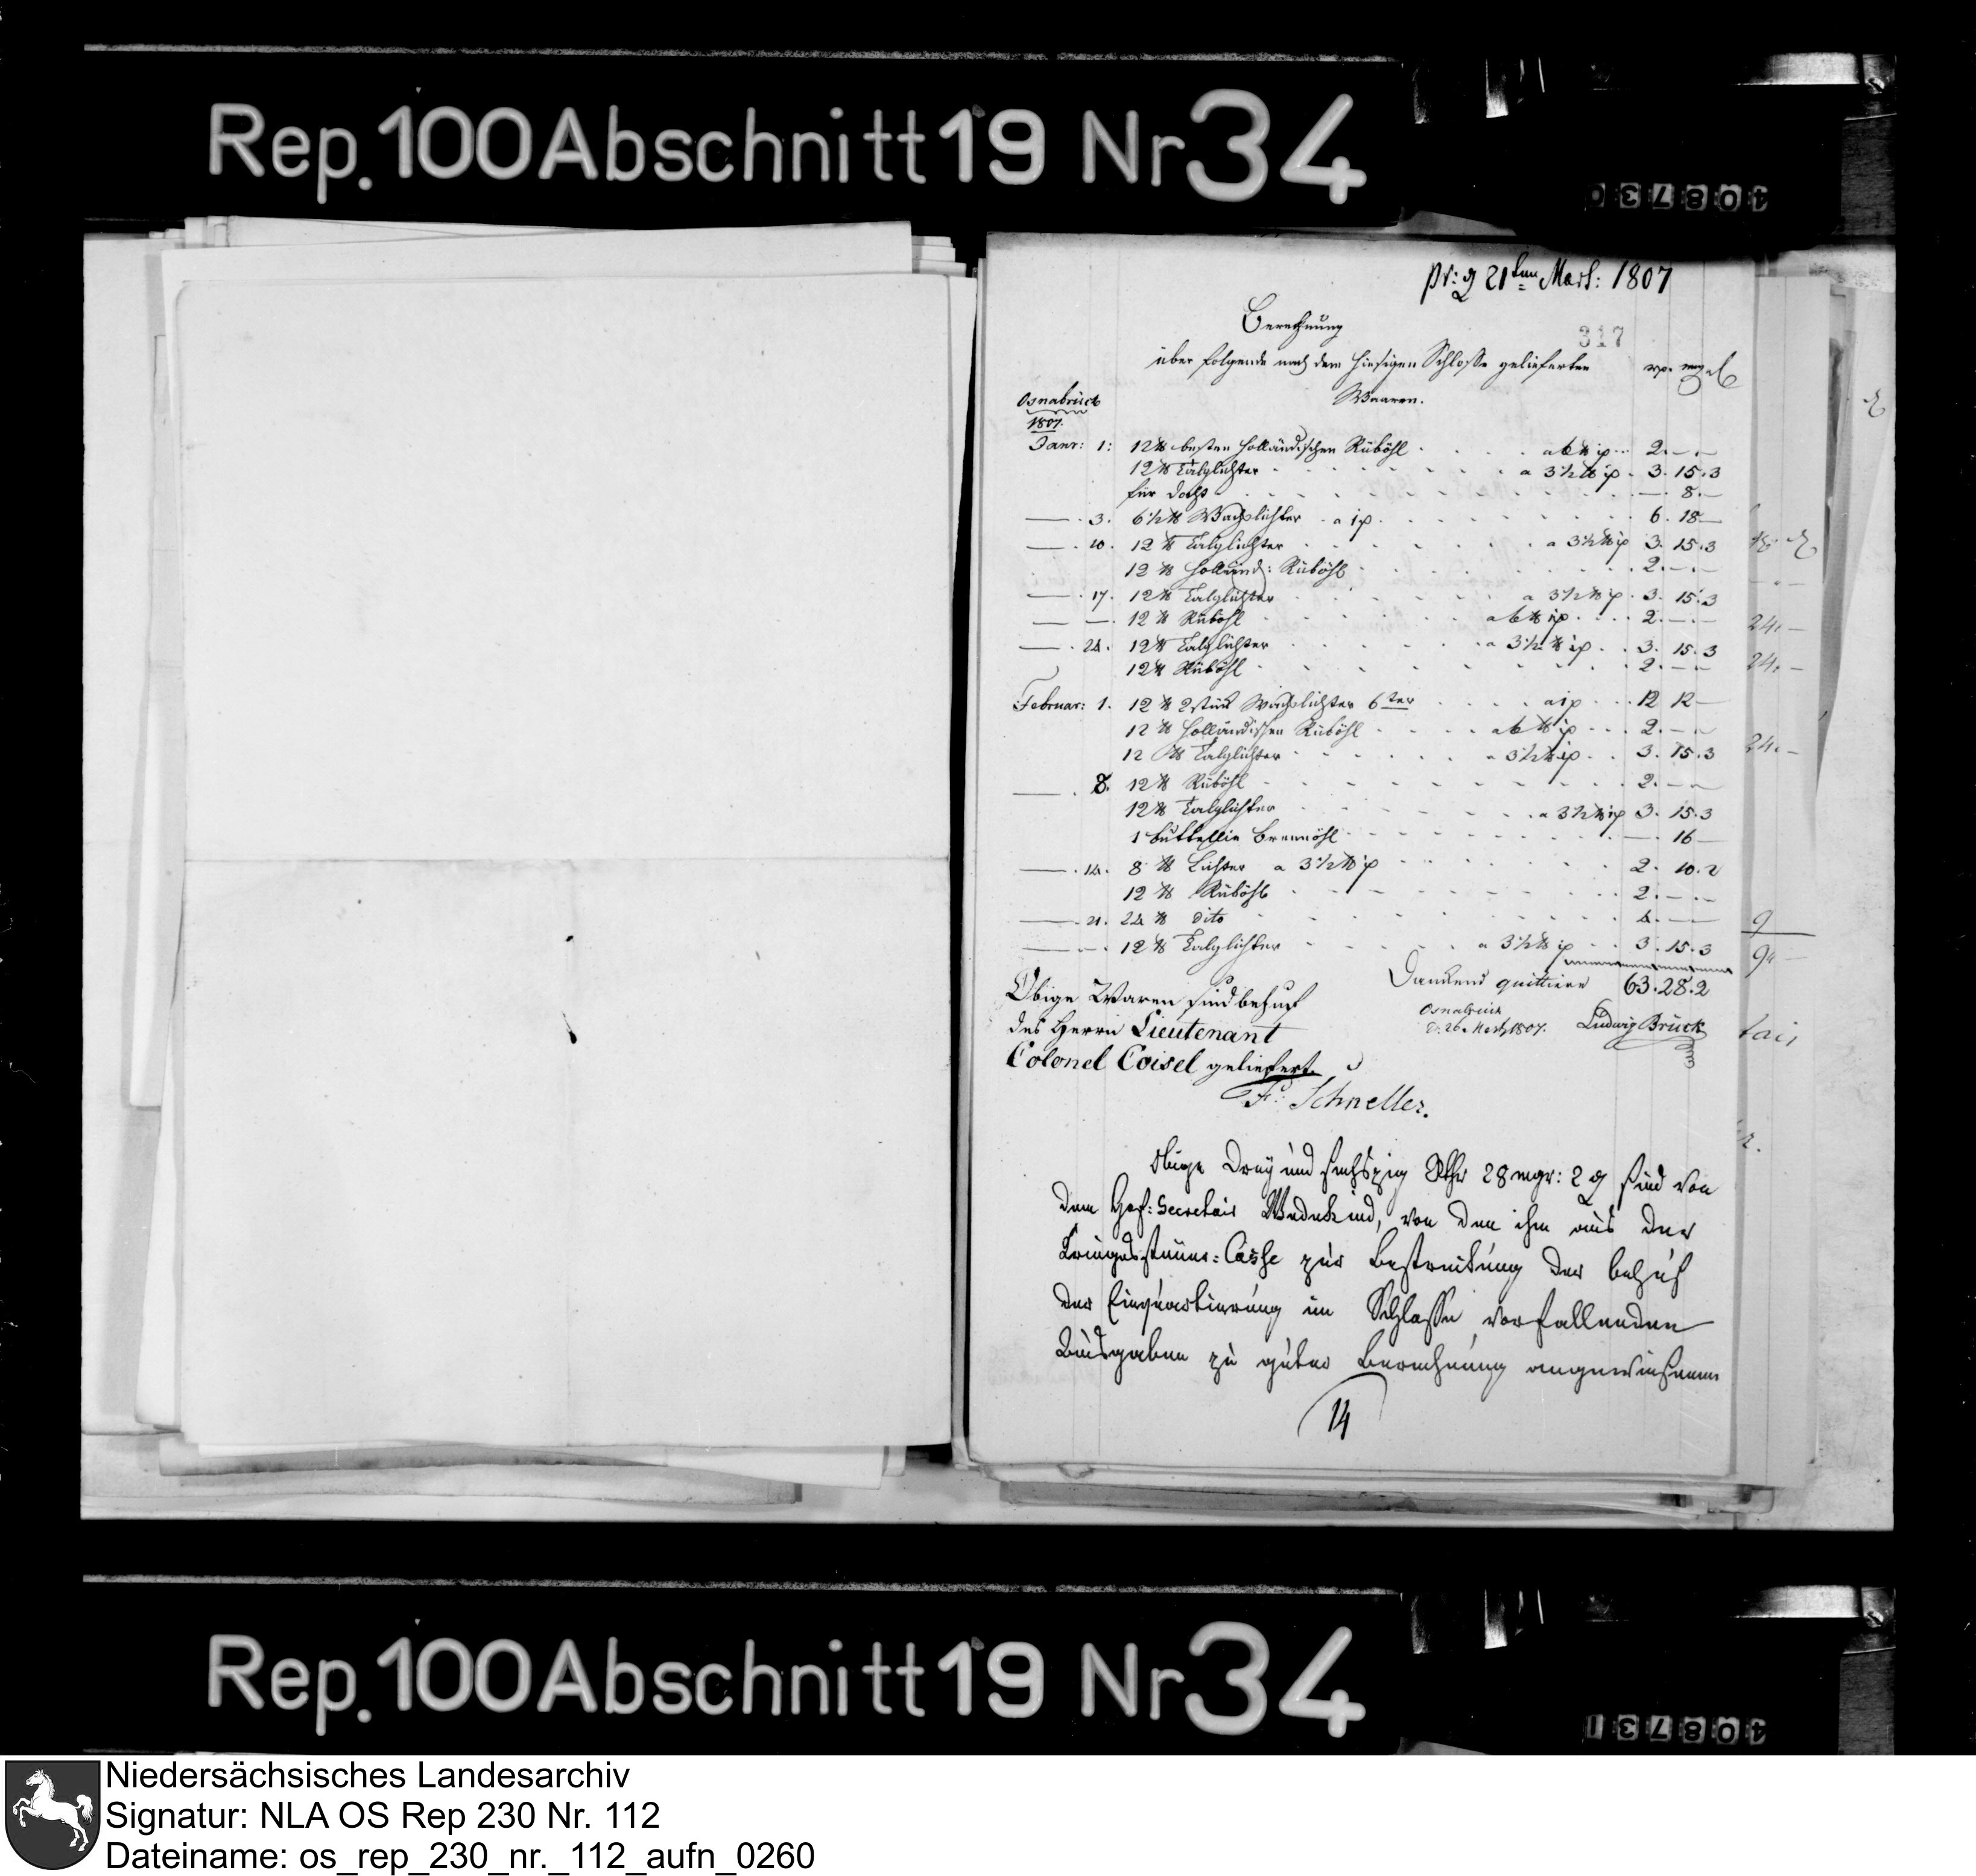 Rep. 100 Abschnitt 19 Nr 34
pr: d 21ten Mart: 1807
Berechnung
317
über folgende nach dem hiesigen Schlosse gelieferten
Waaren.
Osnabrück
1807.
Janr: 1: 12 ℔ besten holländischen Rüböhl a 6 ℔ 2. — —
12 ℔ Talglichter a 3½ ℔ 3. 15. 3
für Docht — 8. —
— 3. 6½ ℔ Wachslichter 6. 18 —
— 10. 12 ℔ Talglichter a 3½ ℔ 3. 15. 3
12 ℔ holländ: Rüböhl 2. — —
— 17. 12 ℔ Talglichter a 3½ ℔ 3. 15. 3
— — 12 ℔ Rüböhl a 6 ℔ 2. — —
— 24. 12 ℔ Talglichter a 3½ ℔ 3. 15. 3
12 ℔ Rüböhl 2. — —
Februar: 1. 12 ℔ 2 stück Wachslichter 6ter 12 12 —
12 ℔ holländischen Rüböhl a 6 ℔ 2. — —
12 ℔ Talglichter a 3½ ℔ 3. 15. 3
— 8. 12 ℔ Rüböhl 2. — —
12 ℔ Talglichter a 3½ ℔ 3. 15. 3
1 buttellie Brennöhl — 16 —
— 14. 8 ℔ Lichter a 3½ ℔ 2. 10. 2
12 ℔ Rüböhl 2. — —
— 21. 24 ℔ dito 4. — —
— — 12 ℔ Talglichter a 3½ ℔ 3. 15. 3
63. 28. 2
Dankend quittire
Osnabrück
d. 26 Mertz 1807. Ludwig Brück
Obige Waren sind behuf
des Herrn Lieutenant
Colonel Coisel geliefert.
F. Schneller.
Obige Drey und sechszig Rthr 28 mgr: 2 d sind von
dem Hof: Secretair Wedekind, von den ihm aus der
Kriegessteuer-Casse zur Bestreitung der behuf
der Einquartierung im Schlosse vorfallenden
Ausgaben zu guter Berechnung angewiesenen
14
Rep. 100 Abschnitt 19 Nr 34
Niedersächsisches Landesarchiv
Signatur: NLA OS Rep 230 Nr. 112
Dateiname: os_rep_230_nr._112_aufn_0260